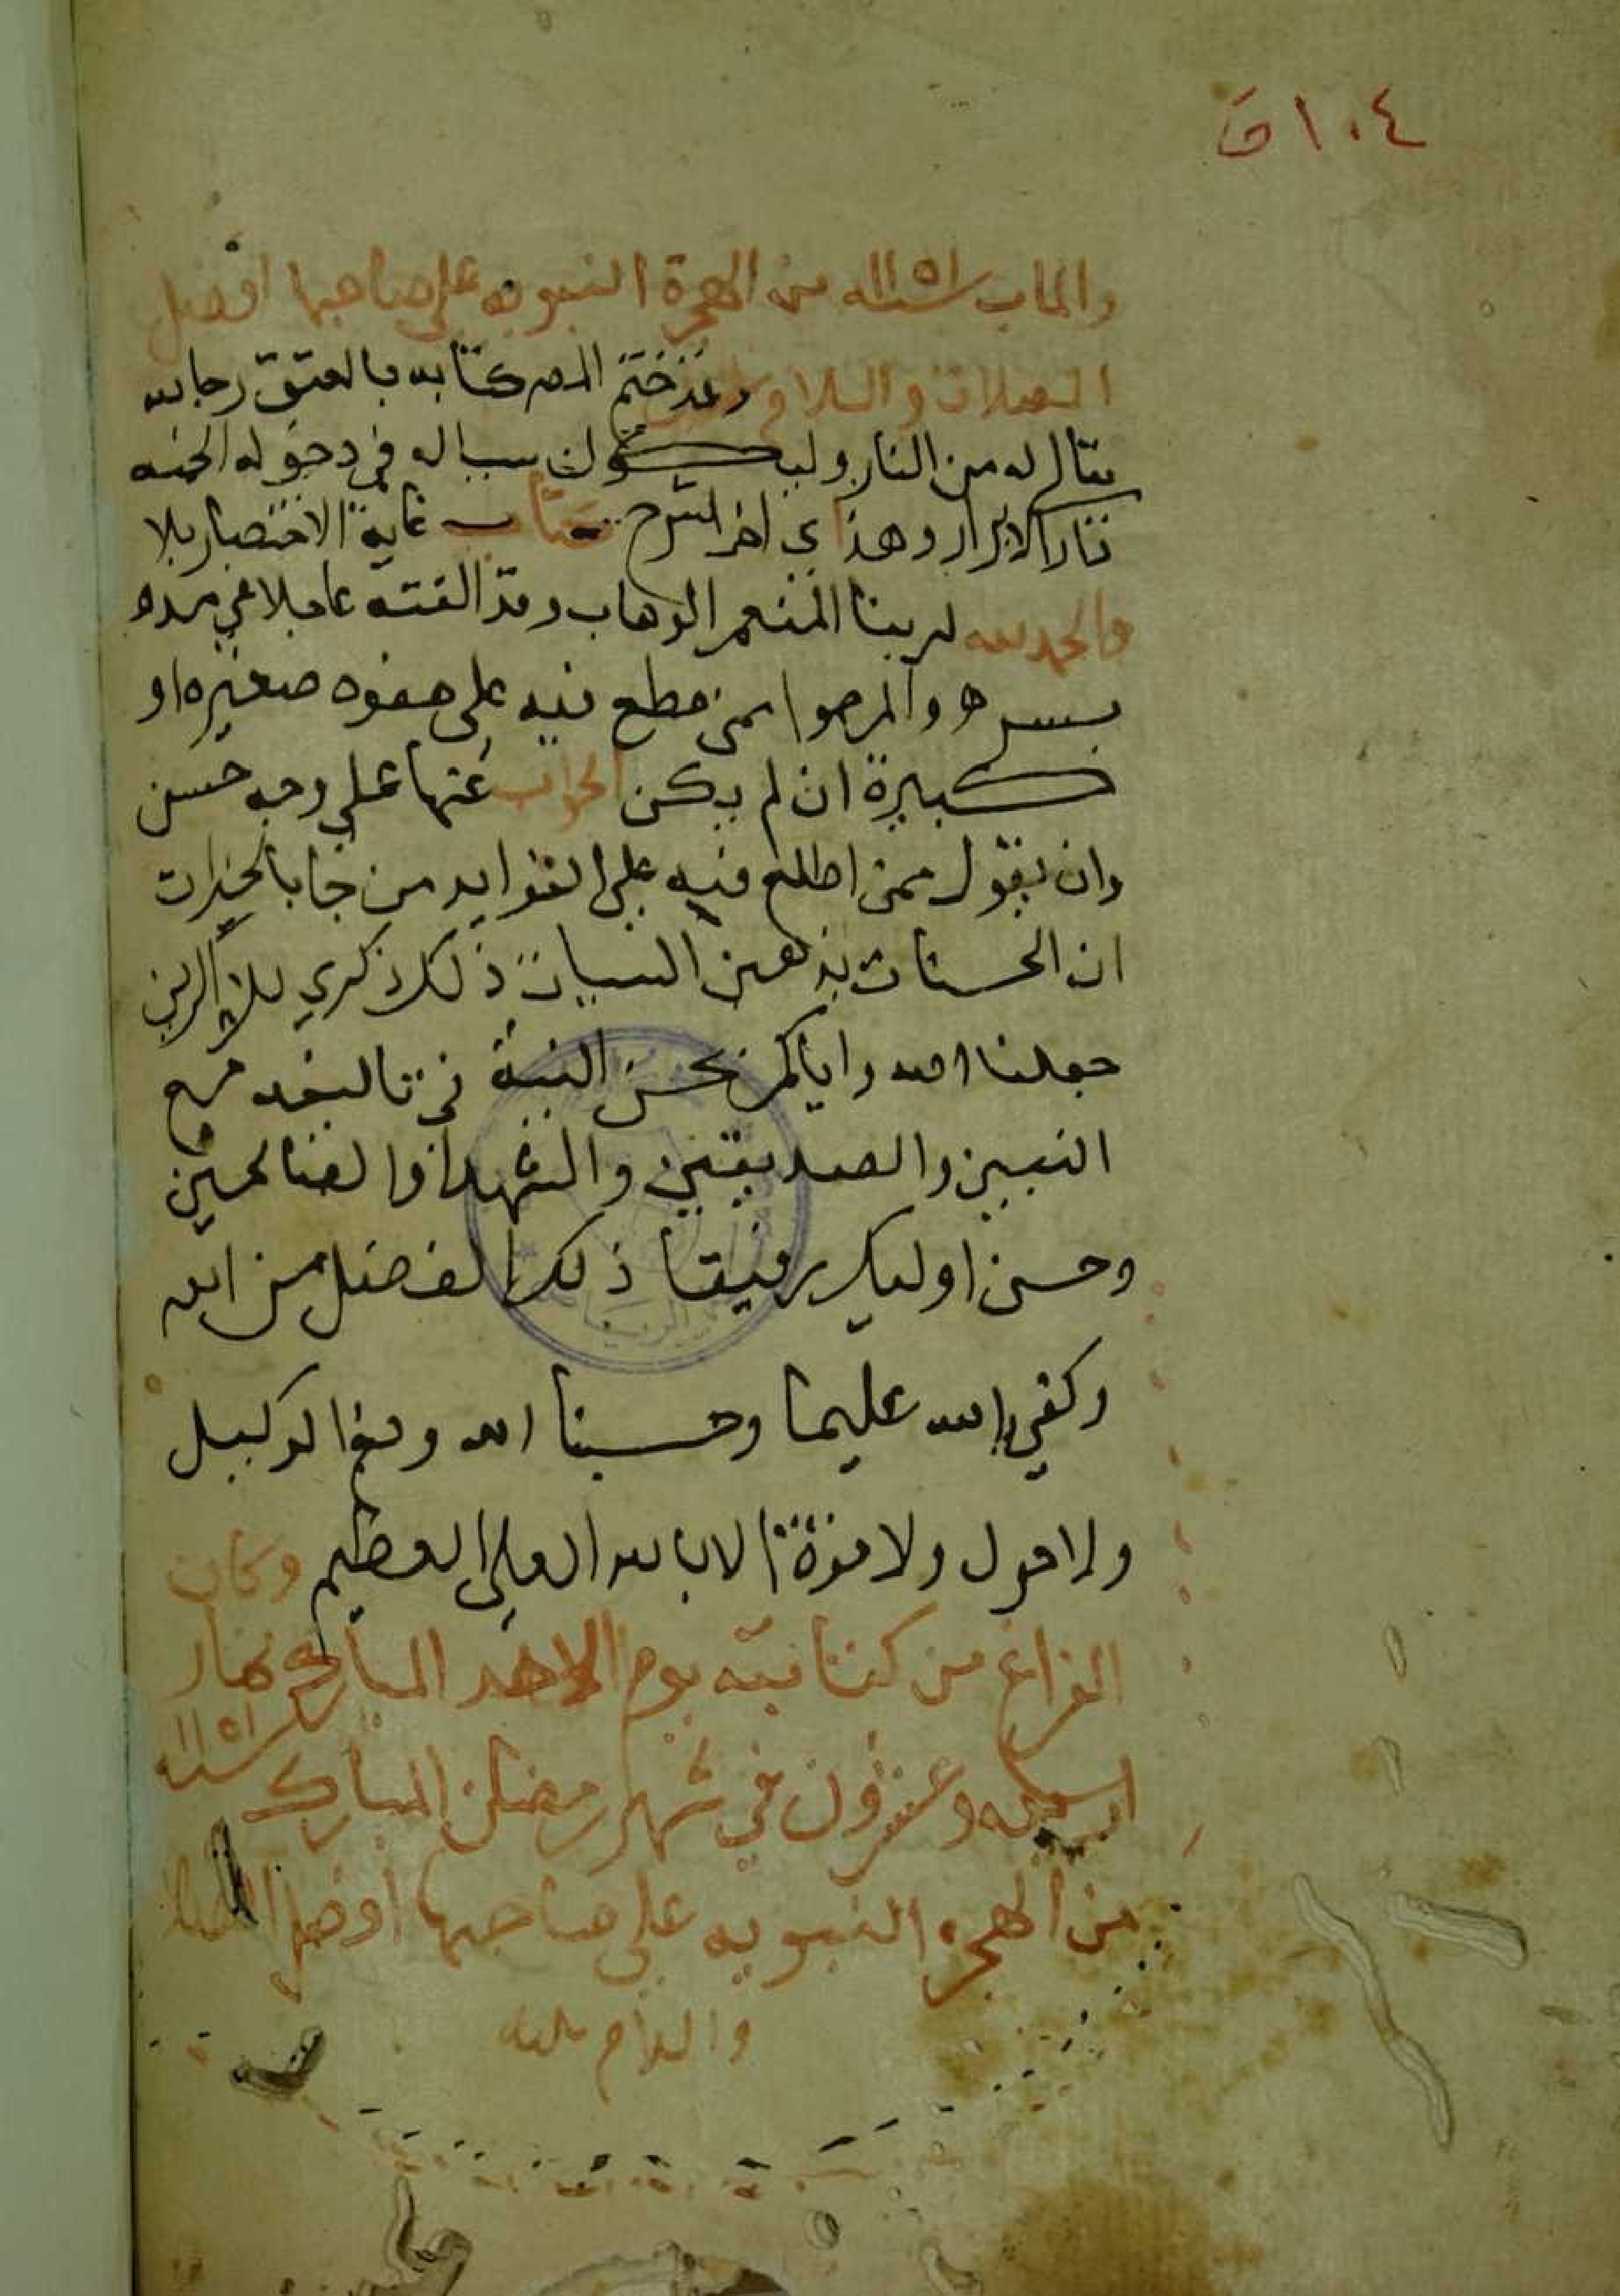 ١٠٤ ق
والماب سنة ١١٥١ من الهجرة النبويه على صاحبها افضل
الصلات والسلام وقد ختم المص كتابه بالعتق رجا ان
يتاله من النار وليكون سببا له في دخوله الجنه
وهذا اخر شرح كتاب غاية الاختصار بلا
والحمد لله لربنا المنعم الوهاب وقد الفته عاجلا في مده
يسيره والمرجوا ممن اطلع فيه على هفوه صغيره او
كبيرة ان لم يكن الجواب عنها على وجه حسن
وان يقول ممن اطلع فيه على الفوايد من جا بالخيرات
ان الحسنات يذهبن السيات ذلك ذكري للذاكرين
جعلنا الله واياكم بحسن النية في تاليفه مع
النبيين والصديقين والشهدا والصالحين
وحسن اوليك رفيقا ذلك الفضل من الله
وكفي بالله عليما وحسبنا الله ونعم الوكيل
ولا حول ولا قوة الا بالله العلى العظيم وكان
الفراغ من كتابته يوم الاحد المبارك نهار
اربعه وعشرون في شهر رمضان المبارك سنة ١١٥١
من الهجره النبويه على صاحبها افضل الصلا
والسلام